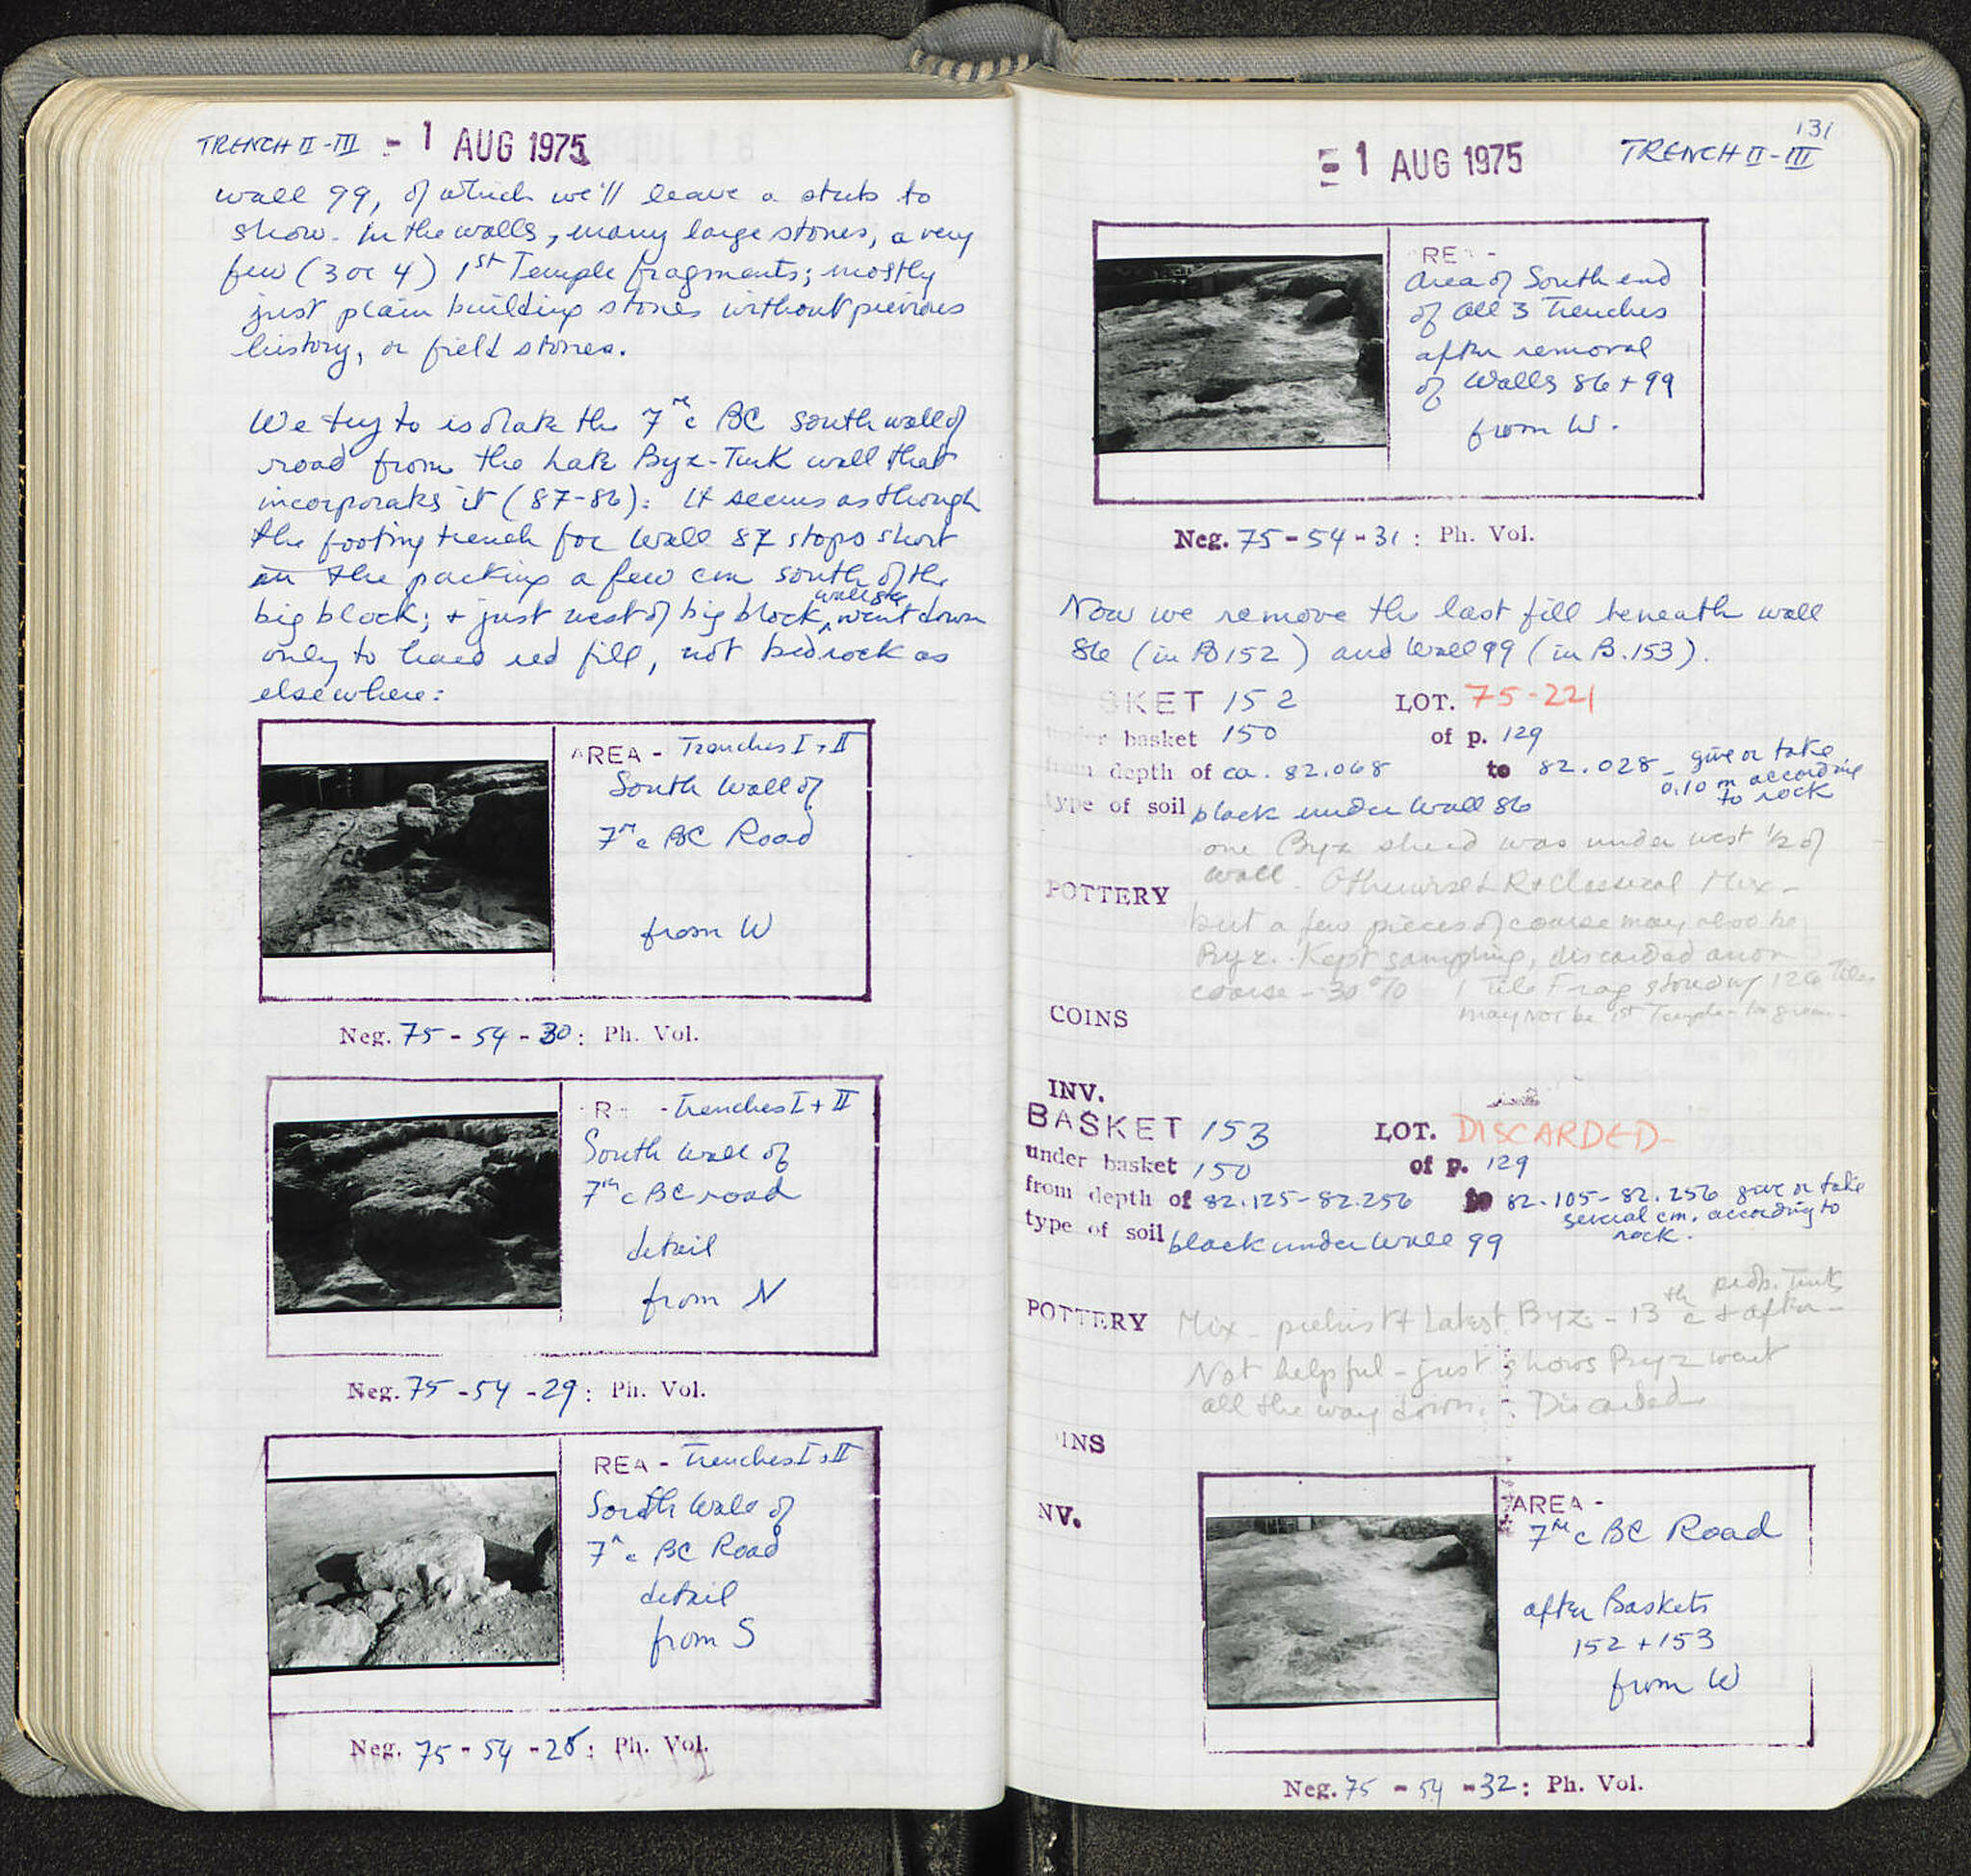 TRENCH II-III - 1 AUG 1975
wall 99, of which we'll leave a stub to
show. In the walls, many large stones, a very
few (3 or 4) 1st Temple fragments; mostly
just plain building stones without previous
history, or field stones.
We try to isolate the 7th c BC south wall of
road from the Late Byz-Turk wall that
incorporates it (87-86): It seems as though
the footing trench for Wall 87 stops short
in the packing a few cm south of the
big block; + just west of big block, wall 86 went down
only to hard red fill, not bedrock as
elsewhere:
AREA - Trenches I + II
South Wall of
7th c BC Road
from W
Neg. 75 - 54 - 30: Ph. Vol.
R - Trenches I + II
South Wall of
7th c BC road
detail
from N
Neg. 75 - 54 - 29: Ph. Vol.
REA - Trenches I + II
South Wall of
7th c BC Road
detail
from S
Neg. 75 - 54 - 28: Ph. Vol.
131
- 1 AUG 1975 TRENCH II-III
REA -
Area of South end
of all 3 Trenches
after removal
of Walls 86 + 99
from W.
Neg. 75 - 54 - 31: Ph. Vol.
Now we remove the last fill beneath wall
86 (in B152) and Wall 99 (in B.153).
BASKET 152 LOT. 75-221
under basket 150 of p. 129
from depth of ca. 82.068 to 82.028 - give or take
0.10 m according
to rock
type of soil black under Wall 86
one Byz sherd was under west 1/2 of
wall. Otherwise LR + Classical Mix -
POTTERY
but a few pieces of coarse may also be
Byz. Kept sampling, discarded
coarse - 30% 1 Tile Frag
may not be 1st Temple
COINS
INV.
BASKET 153 LOT. DISCARDED-
under basket 150 of p. 129
from depth of 82.125-82.256 to 82.105-82.256 give or take
several cm. according to
rock.
type of soil black under Wall 99
prob. Turk
POTTERY Mix - prehist + Latest Byz - 13th c + after -
Not helpful - just shows Byz went
all the way down. Discarded
INS
NV.
AREA -
7th c BC Road
after Baskets
152 + 153
from W
Neg. 75 - 54 - 32: Ph. Vol.